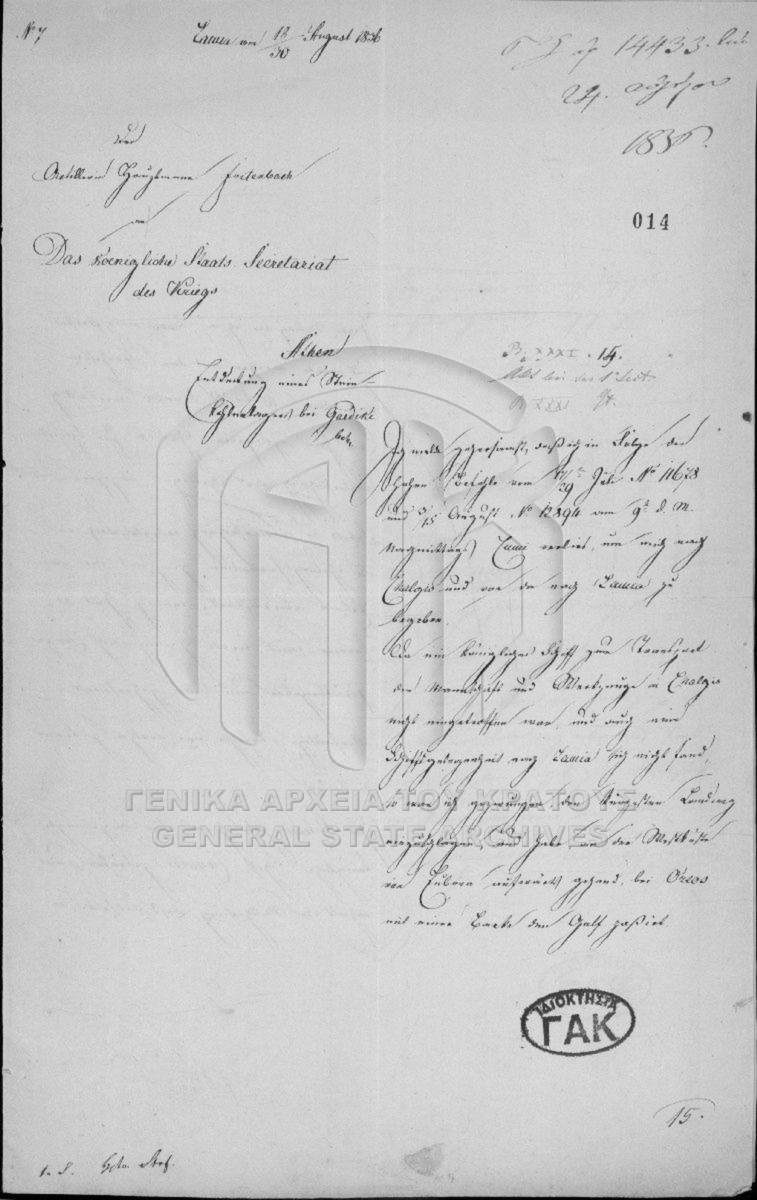 No 7
Lamia am 18/30 August 1836
14433
24.
1836.
Der
Artillerie Hauptmann Foitenbach
an
014
Das Koenigliche Staats Secretariat
des Kriegs
Athen
Entdeckung eines Stein-
kohlenlagers bei Gardiki
betr.
B. XXXI. 14.
XXXI
Ich melde gehorsamst, daß ich in Folge der
hohen Befehle vom 17/29 Juli No 11678
und 3/15 August No 12894 am 9t d. M.
Nachmittags Cumi verließ, um mich nach
Chalgis und von da nach Lamia zu
begeben.
Da ein königliches Schiff zum Transport
der Mannschaft und Werkzeuge in Chalgis
nicht eingetroffen war, und auch eine
Schiffsgelegenheit nach Lamia sich nicht fand,
so war ich gezwungen den kürzesten Landweg
einzuschlagen, und habe an der Westküste
von Euboea aufwärts gehend, bei Oreos
mit einer Barke den Golf paßirt.
ΓΕΝΙΚΑ ΑΡΧΕΙΑ ΤΟΥ ΚΡΑΤΟΥΣ
GENERAL STATE ARCHIVES
ΙΔΙΟΚΤΗΣΙΑ
ΓΑΚ
15.